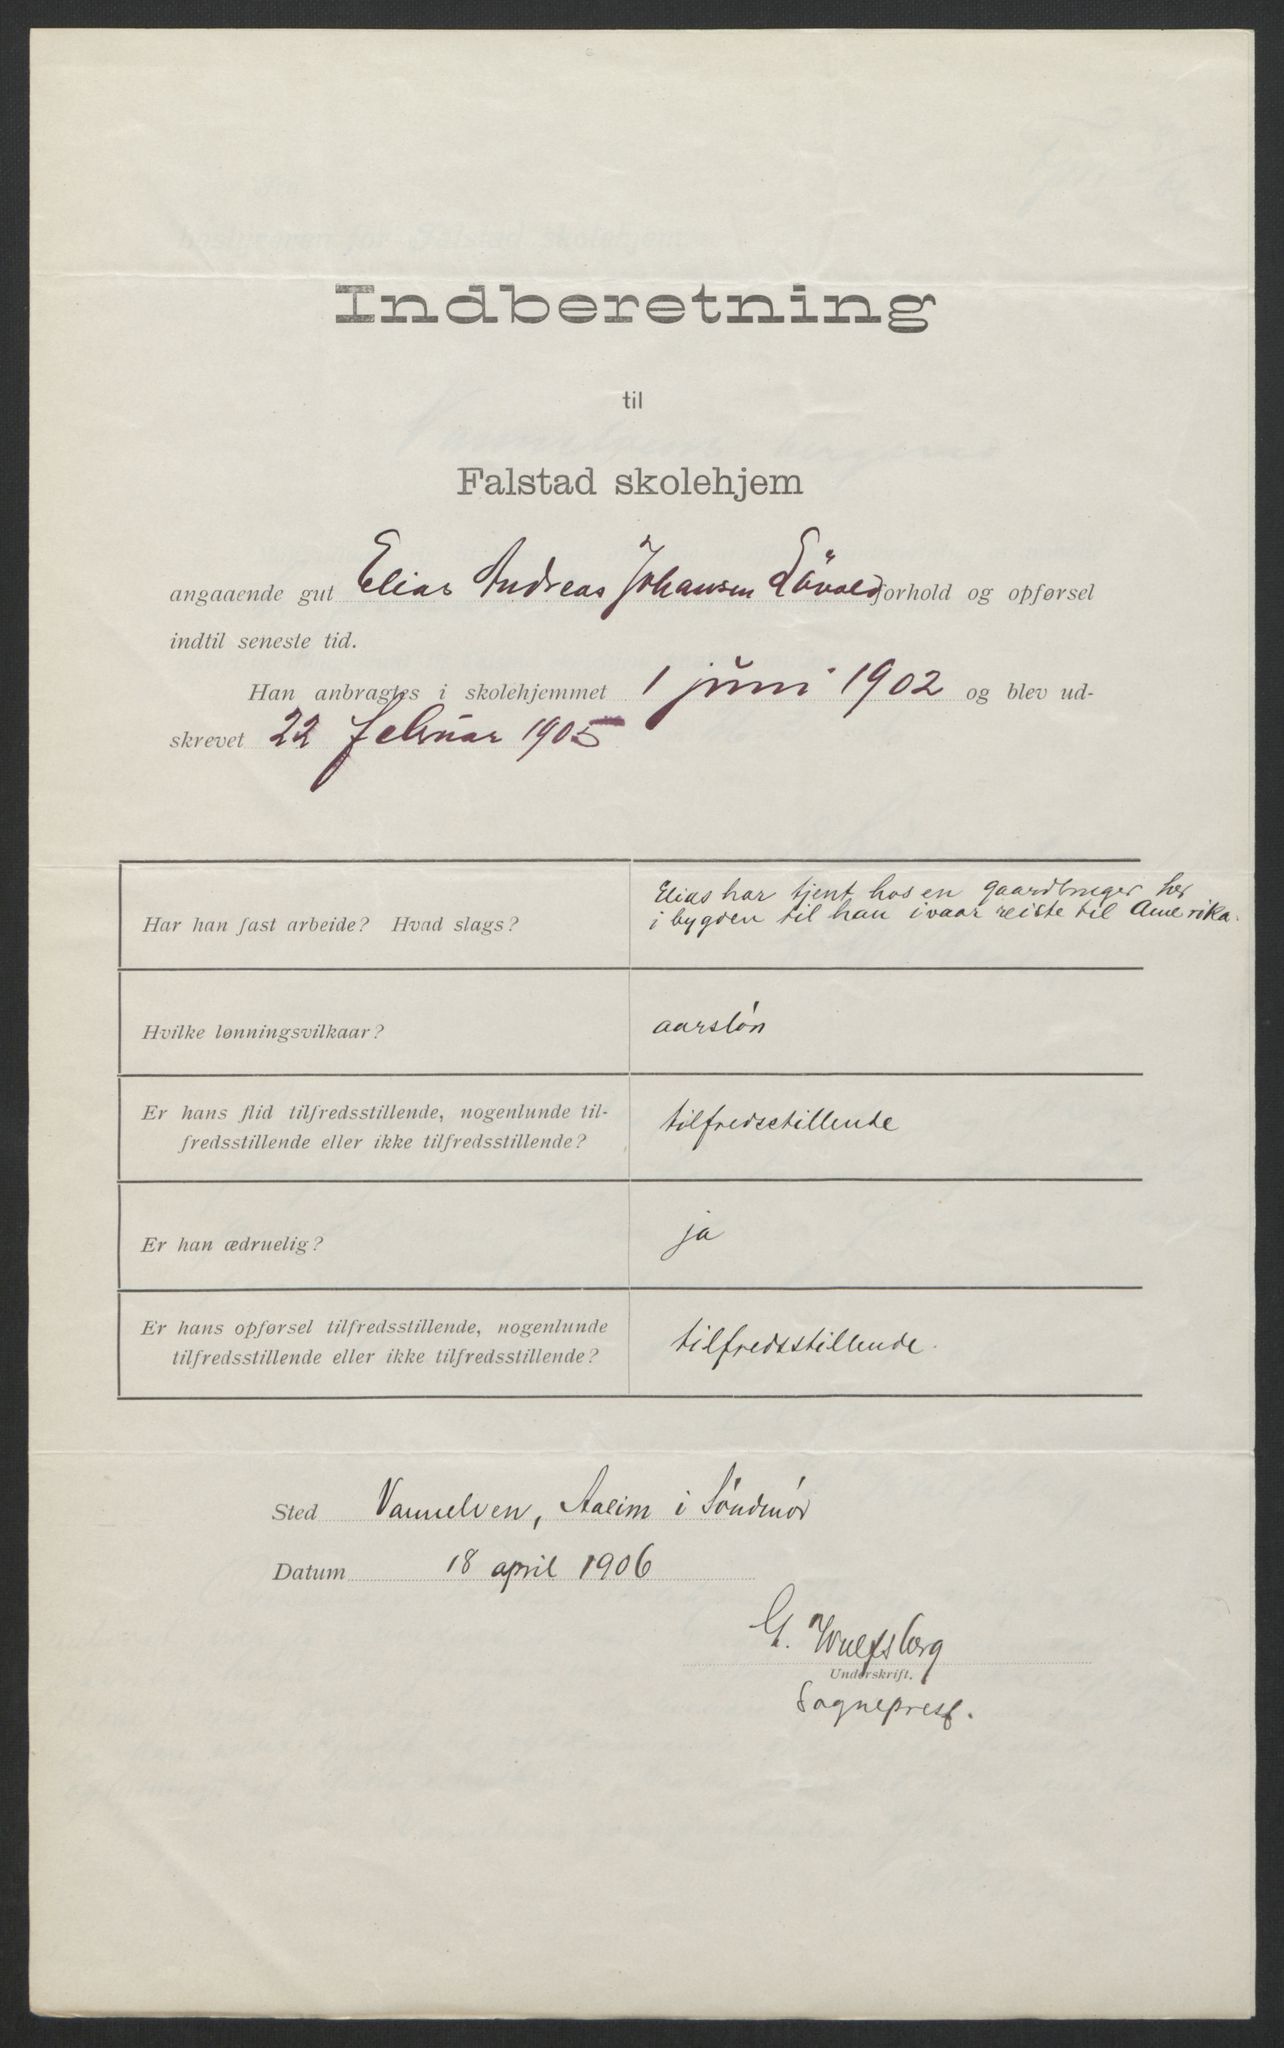 Indberetning
til
Falstad skolehjem
angaaende gut Elias Andreas Johansen Lövold forhold og opførsel
indtil seneste tid.
Han anbragtes i skolehjemmet 1 juni 1902 og blev ud-
skrevet 22 februar 1905
Har han fast arbeide? Hvad slags?
Elias har tjent hos en gaardbruger her
i bygden til han ivaar reiste til Amerika.
Hvilke lønningsvilkaar?
aarsløn
Er hans flid tilfredsstillende, nogenlunde til-
fredsstillende eller ikke tilfredsstillende?
tilfredsstillende
Er han ædruelig?
ja
Er hans opførsel tilfredsstillende, nogenlunde
tilfredsstillende eller ikke tilfredsstillende?
tilfredsstillende.
Sted Vannelven, Aaeim i Søndmør
Datum 18 april 1906
G. Wulfsberg
Underskrift.
Sogneprest.